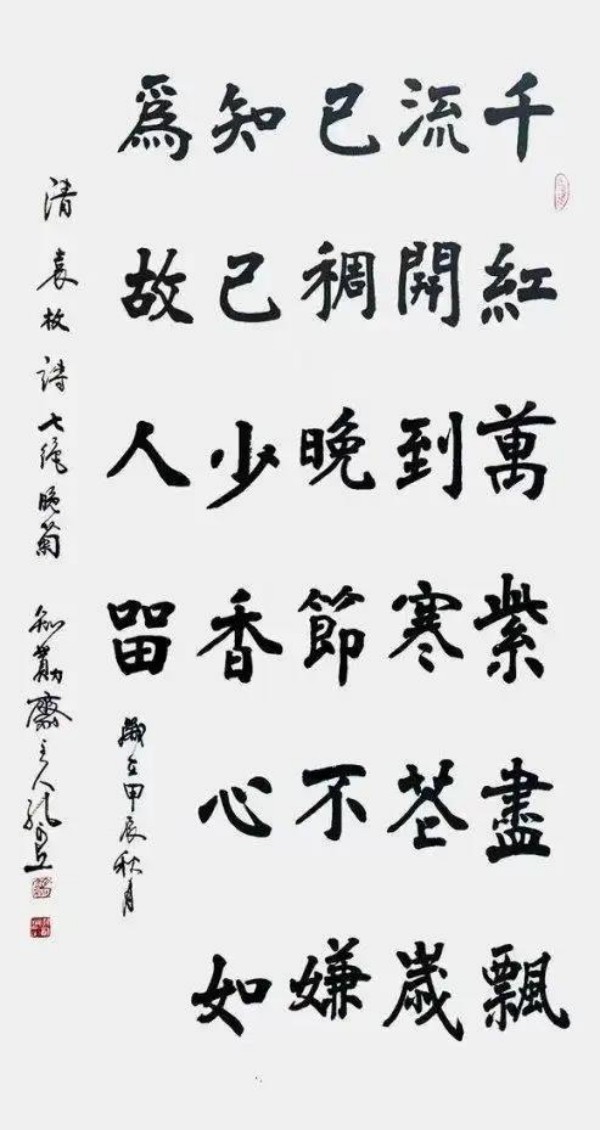 千紅萬紫盡飄
流開到寒花歲
已稠晚節不嫌
知己少香心如
爲故人留
歲在甲辰秋月
清袁枚詩七绝晚菊 知勤齋主人